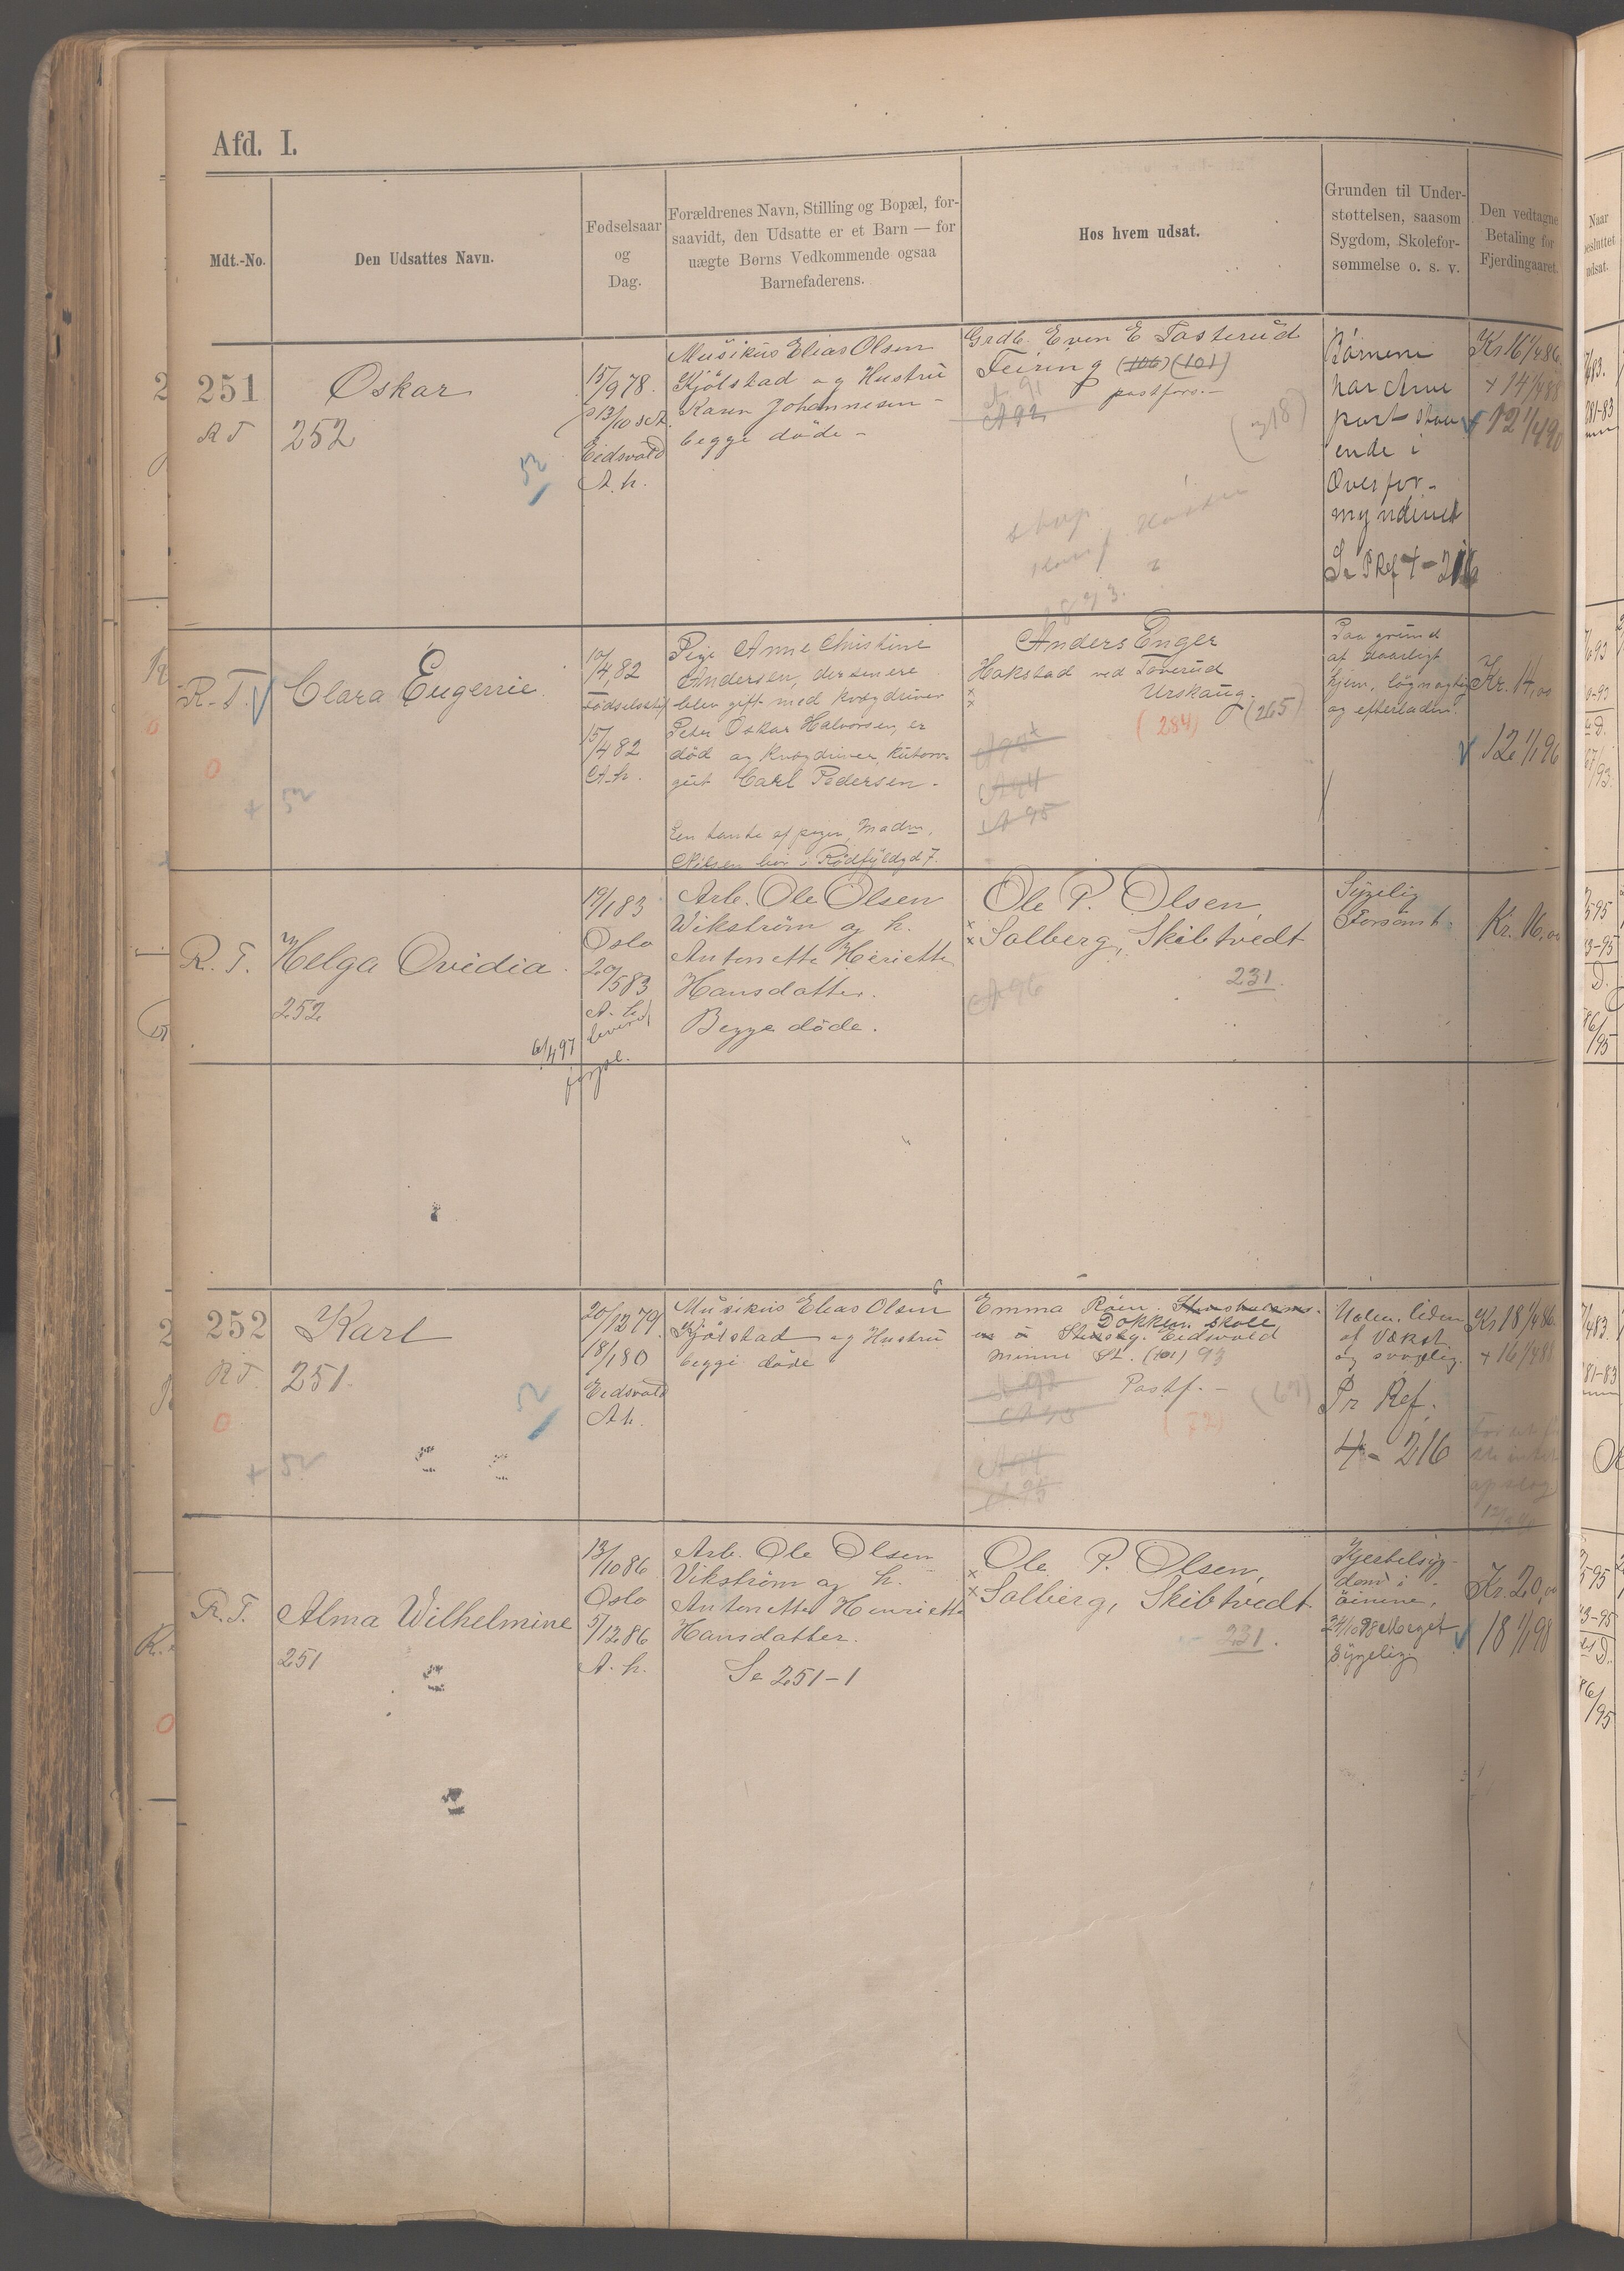 Afd. I.
Mdt.-No.
Den Udsattes Navn.
Fødselsaar
og
Dag.
Forældrenes Navn, Stilling og Bopæl, for-
saavidt, den Udsatte er et Barn — for
uægte Børns Vedkommende ogsaa
Barnefaderens.
Hos hvem udsat.
Grunden til Under-
støttelsen, saasom
Sygdom, Skolefor-
sømmelse o. s. v.
Den vedtagne
Betaling for
Fjerdingaaret.
251
R T
Oskar
252
52
15/9 78.
Eidsvold
A. h.
Musikus Elias Olsen
Kjölstad og Hustru
Karen Johannesen -
begge döde -
Grdb. Even E Tasterud
Feiring (106) (101)
postfors. -
A 92
(318)
Börnene
har Arve
part staa
ende i
Overfor-
myndineet
Se P Ref 4 - 216
Kr 16 1/4 86
+ 14 1/4 88
12 1/4 90
R. T.
Clara Eugenie
+ 52
10/4 82
15/4 82
A. h.
Pige Anne Christine
Andersen, der senere
blev gift med Kvægdriver
Peter Oskar Halvorsen, er
död og Kvægdriver
Carl Pedersen.
En tante af pigen, Madm.
Nilsen bor i Rödfyldgd 7.
Anders Enger
Hakstad ved Toverud
Urskaug.
(284) (265)
A 94
A 95
Paa grund
af daarligt
hjem, lögnagtig
og efterladen.
Kr. 14,00
12 1/1 96
R. T.
Helga Ovidia.
252
6/4 97
19/1 83
Oslo
20/5 83
A. h.
Arb. Ole Olsen
Wikström og h.
Antonette Heriette
Hansdatter.
Begge döde.
Ole P. Olsen,
Solberg, Skibtvedt
A 96
231.
Sygelig
Forsömt.
Kr. 16,00
252
R T.
Karl
251.
52
+ 52
20/12 79.
18/1 80
Eidsvold
A h.
Musikus Elias Olsen
Kjölstad og Hustru
begge döde
Emma Röin.
Dokken skole
Eidsvold
Minne St. (101) 93
Postf. -
(67)
A 94
A 95
liden
af Vækst
og svagelig.
Pr Ref.
4 - 216
Kr 18 1/4 86.
+ 16 1/4 88
R. T.
Alma Wilhelmine
251
13/10 86
Oslo
5/12 86
A. h.
Arb. Ole Olsen
Vikström og h.
Antonette Henriette
Hansdatter.
Se 251 - 1
Ole P. Olsen,
Solberg, Skibtvedt
231.
Kjertelsyg-
dom i
öinene,
24/10 98 Meget
sygelig
Kr. 20,00
18 1/1 98